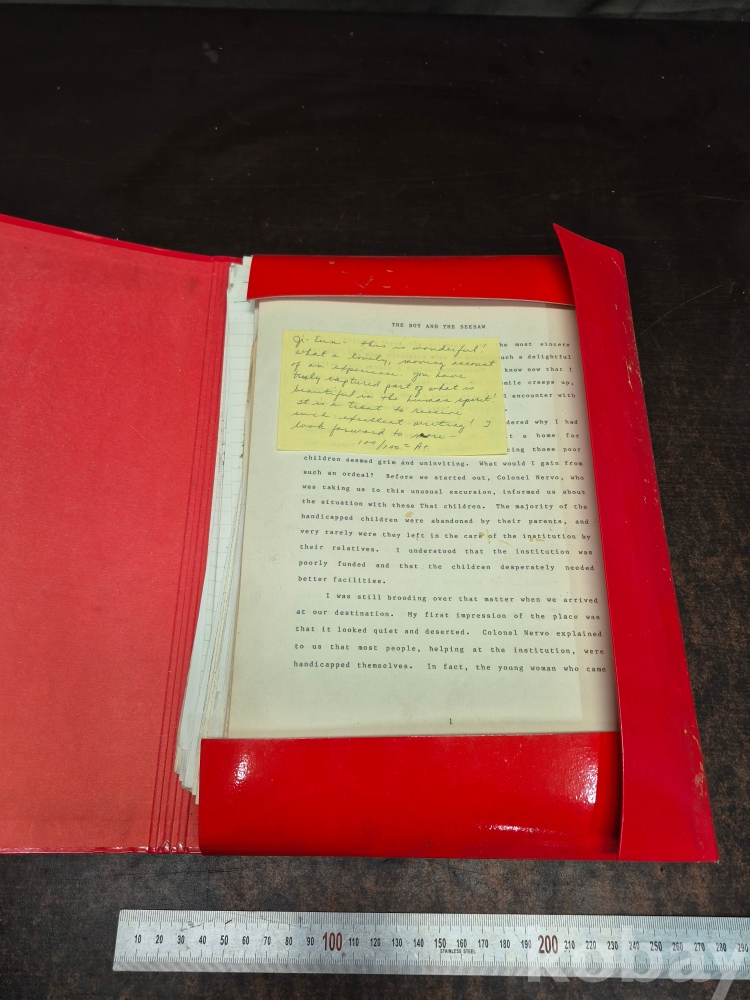 THE BOY AND THE SEESAW
the most sincere
such a delightful
know now that I
creeps up,
encounter with
why I had
a home for
those poor
This is wonderful!
what a lovely, moving account
of an experience. you have
truly captured part of what is
beautiful in the human spirit!
It is a treat to receive
such excellent writing! I
look forward to more-
100/100 = A+
children seemed grim and uninviting. What would I gain from
such an ordeal? Before we started out, Colonel Nervo, who
was taking us to this unusual excursion, informed us about
the situation with these Thai children. The majority of the
handicapped children were abandoned by their parents, and
very rarely were they left in the care of the institution by
their relatives. I understood that the institution was
poorly funded and that the children desperately needed
better facilities.
I was still brooding over that matter when we arrived
at our destination. My first impression of the place was
that it looked quiet and deserted. Colonel Nervo explained
to us that most people, helping at the institution, were
handicapped themselves. In fact, the young woman who came
1
10 20 30 40 50 60 70 80 90 100 110 120 130 140 150 160 170 180 190 200 210 220 230 240 250 260 270 280 290
STAINLESS STEEL
Kobay